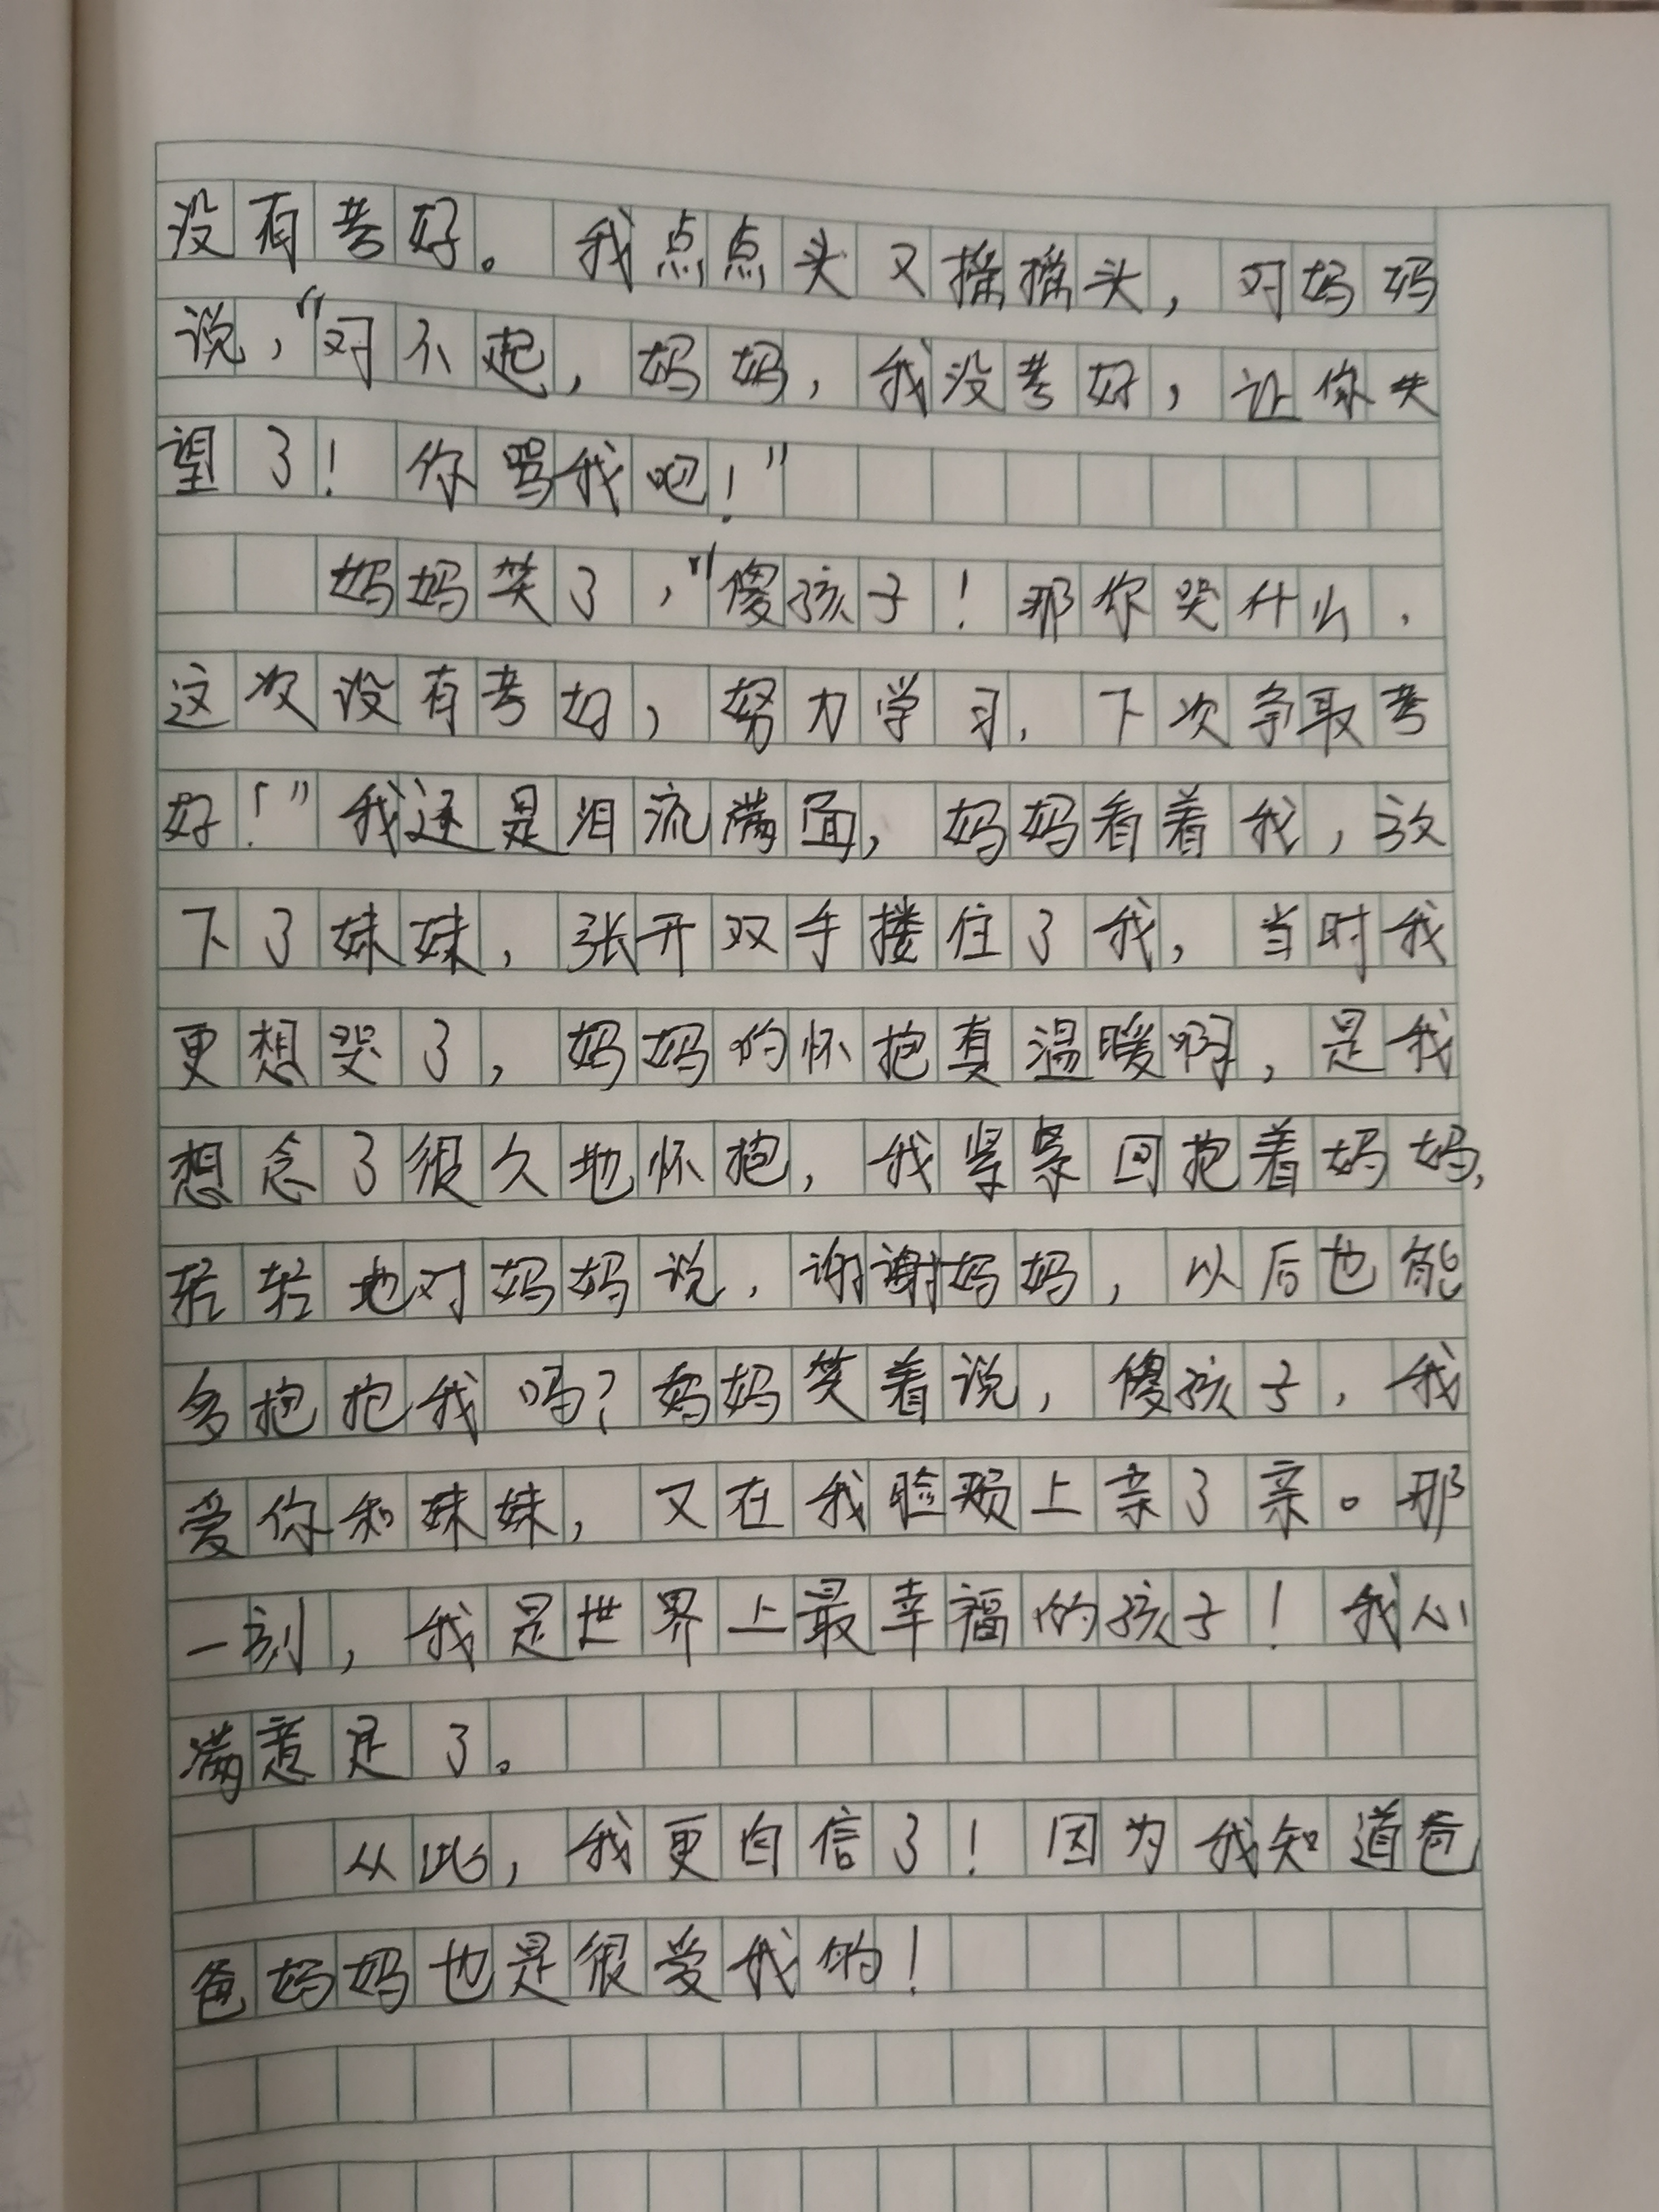 没有考好。我点点头又摇摇头，对妈妈
说，“对不起，妈妈，我没考好，让你失
望了！你骂我吧！”
妈妈笑了，“傻孩子！那你哭什么，
这次没有考好，努力学习，下次争取考
好！”我还是泪流满面，妈妈看着我，放
下了妹妹，张开双手搂住了我，当时我
更想哭了，妈妈的怀抱真温暖啊，是我
想念了很久地怀抱，我紧紧回抱着妈妈，
轻轻地对妈妈说，谢谢妈妈，以后也能
多抱抱我吗？妈妈笑着说，傻孩子，我
爱你和妹妹，又在我脸颊上亲了亲。那
一刻，我是世界上最幸福的孩子！我心
满意足了。
从此，我更自信了！因为我知道爸
爸妈妈也是很爱我的！